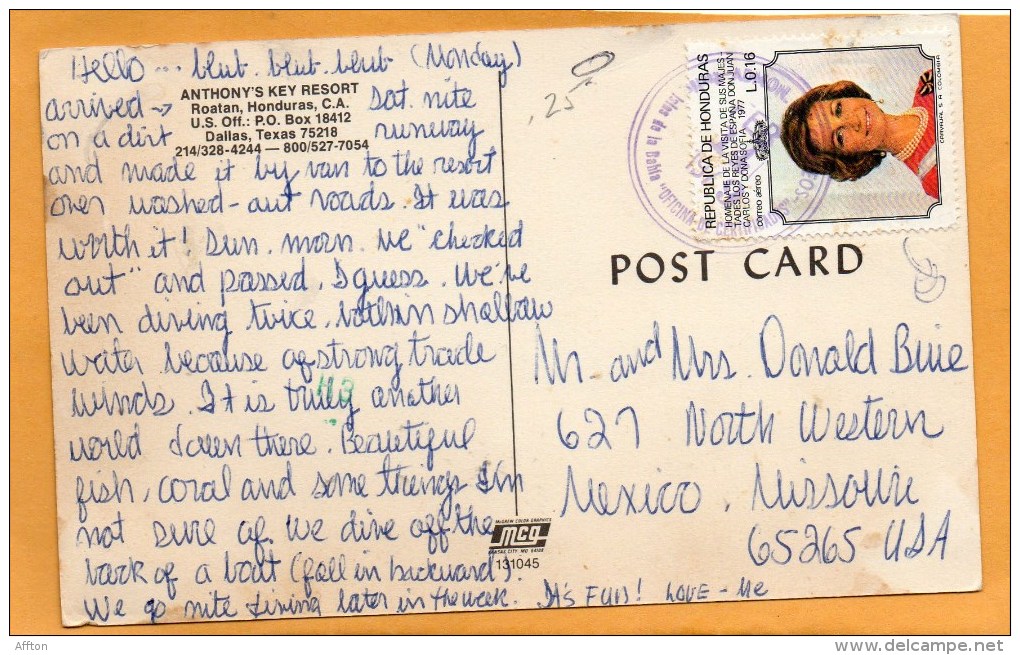 Hello ... blub. blub. blub (Monday)
ANTHONY'S KEY RESORT
Roatan, Honduras, C.A.
U.S. Off.: P.O. Box 18412
Dallas, Texas 75218
214/328-4244 — 800/527-7054
arrived → Sat. nite
on a dirt runway
and made it by van to the resort
over washed-out roads. It was
worth it! Sun. morn. we "checked
out" and passed, I guess. We've
been diving twice, both in shallow
water because of strong trade
winds. It is truly another
world down there. Beautiful
fish, coral and some things I'm
not sure of. We dive off the
back of a boat (fall in backward).
We go nite diving later in the week. It's FUN! LOVE - Me
113
mcg
McGREW COLOR GRAPHICS
KANSAS CITY, MO. 64108
131045
25
REPUBLICA DE HONDURAS
HOMENAJE DE LA VISITA DE SUS MAJES-
TADES LOS REYES DE ESPAÑA DON JUAN
CARLOS Y DOÑA SOFIA - 1977
correo aéreo
L.0.16
CARVAJAL S. A. COLOMBIA
POST CARD
Mr. and Mrs. Donald Buie
627 North Western
Mexico, Missouri
65265 USA
Affton
delcampe.net